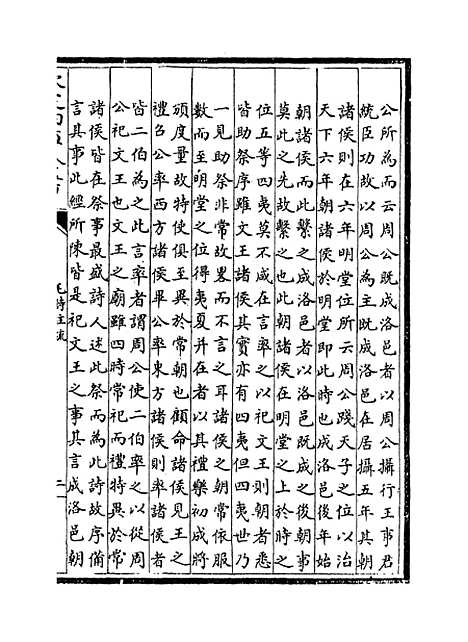 公所為而云周公既成洛邑者以周公攝行王事君
統臣功故以周公為主既成洛邑在居攝五年其朝
諸侯則在六年明堂位所云周公踐天子之位以治
天下六年朝諸侯於明堂即此時也成洛邑後年始
朝諸侯而此繫之成洛邑者以洛邑既成之後朝事
莫此之先故繫之也此朝諸侯在明堂之上於時之
位五等四夷莫不咸在言率之以祀文王則朝者悉
皆助祭序雖文王諸侯其實亦有四夷但四夷世乃
一見助祭非常故畧而不言之耳諸侯之朝常依服
數而至明堂之位得夷夏并在者以其禮樂初成將
頒度量故特使俱至異於常朝也顧命諸侯見王之
禮召公率西方諸侯畢公率東方諸侯則率諸侯者
皆二伯為之此言率者謂周公使二伯率之以從周
公祀文王也文王之廟雖四時常祀而禮特異於常
諸侯皆在祭事最盛詩人述此祭而為此詩故序備
言其事此經所陳皆是祀文王之事其言成洛邑朝
毛詩注疏